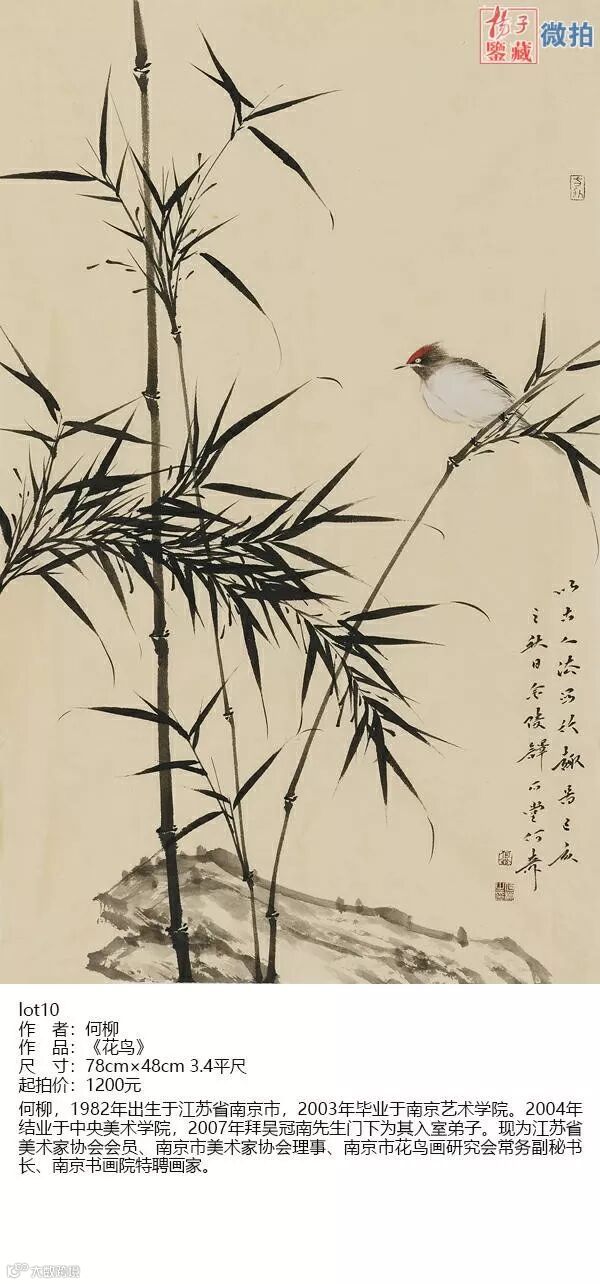 扬子
鉴藏
微拍
以古人法写
之秋日金陵
lot10
作　者：何柳
作　品：《花鸟》
尺　寸：78cm×48cm 3.4平尺
起拍价：1200元
何柳，1982年出生于江苏省南京市，2003年毕业于南京艺术学院。2004年
结业于中央美术学院，2007年拜吴冠南先生门下为其入室弟子。现为江苏省
美术家协会会员、南京市美术家协会理事、南京市花鸟画研究会常务副秘书
长、南京书画院特聘画家。
大数跨境